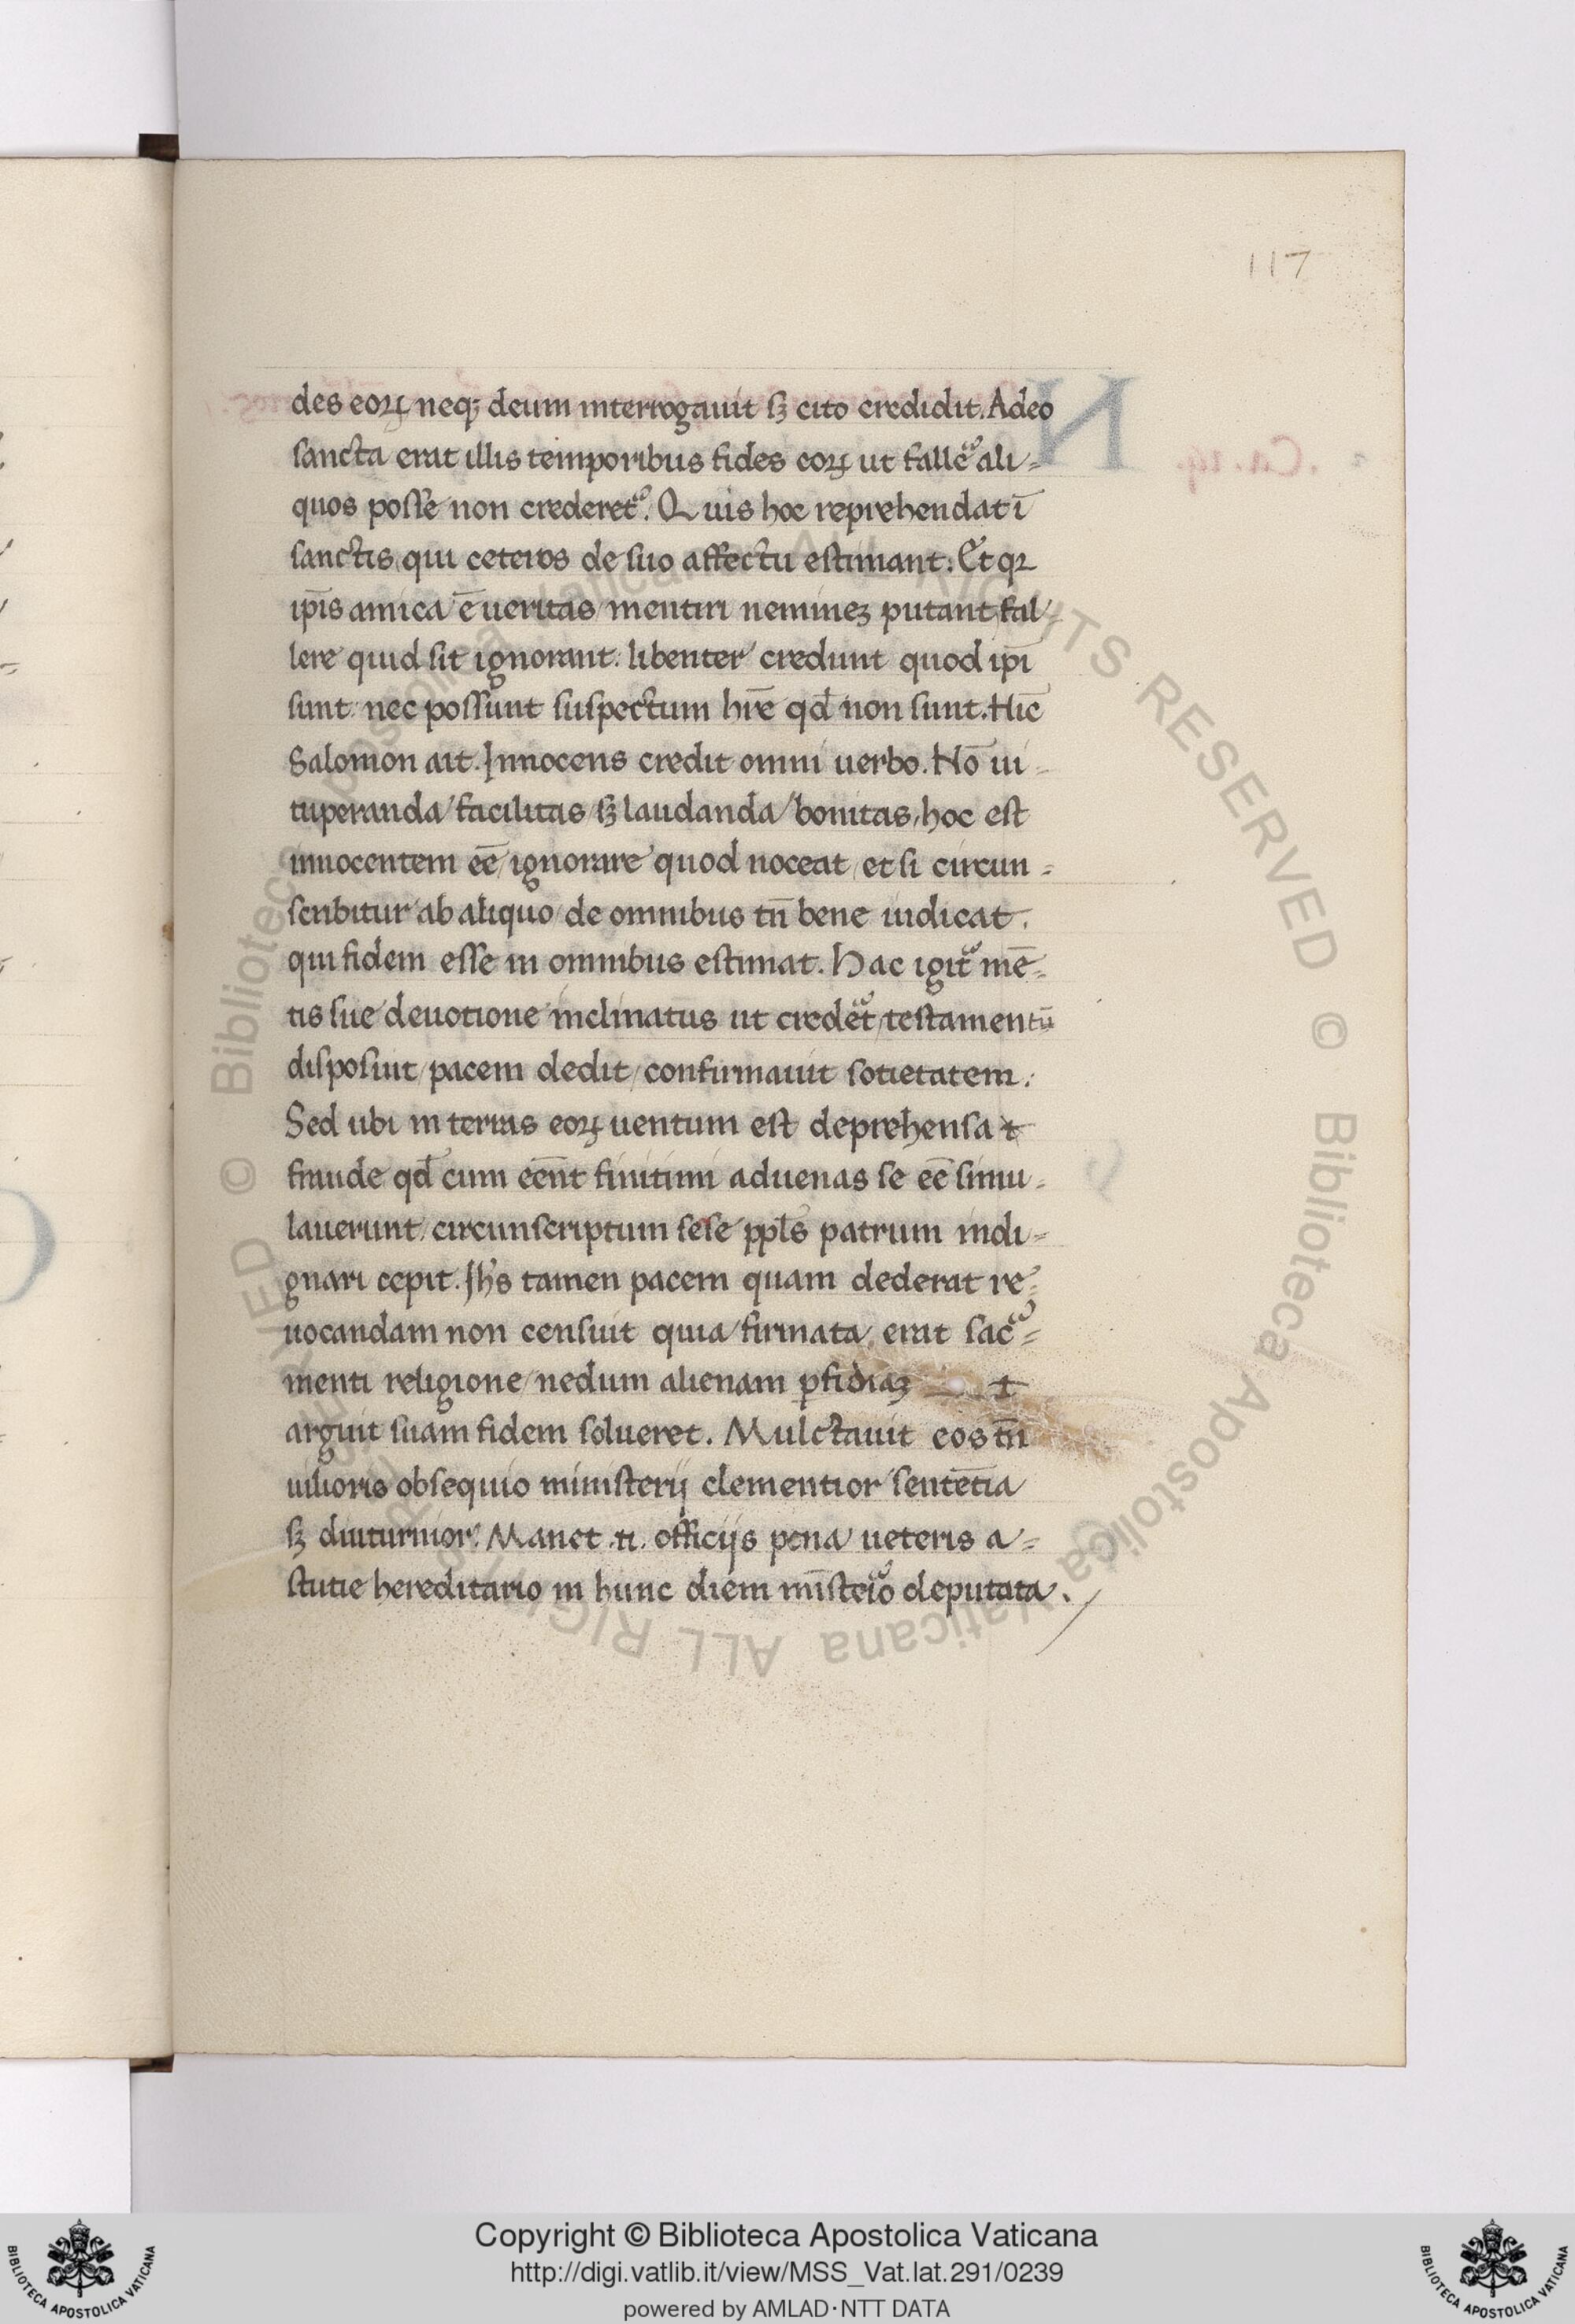 117
des eoꝝ neq; deum interrogauit sꝫ cito credidit. Adeo
sancta erat illis temporibus fides eoꝝ ut fallẽ ali-
quos posse non crederet᷑. Quis hoc reprehendat ī
sanctis qui ceteros de suo affectu estimant. Et qꝛ
ip̄is amica ē ueritas / mentiri nemineꝫ putant, fal-
lere quid sit ignorant: libenter credunt quod ip̄i
sunt: nec possunt suspectum hr̄e qđ non sunt. Hīc
Salomon ait. Innocens credit omni uerbo. Nō ui-
tuperanda / facilitas / sꝫ laudanda / bonitas, hoc est
innocentem eē / ignorare quod noceat / et si circun-
scribitur ab aliquo / de omnibus tn̄ bene iudicat.
qui fidem esse in omnibus estimat. Hac igit᷑ mē-
tis sue deuotione inclinatus ut credet᷑ / testamentū
disposuit / pacem dedit / confirmauit sotietatem.
Sed ubi in terras eoꝝ uentum est deprehensa
fraude qđ cum eēnt finitimi aduenas se eē simu-
lauerunt / circunscriptum sese ppl̄s patrum indi-
gnari cepit. Ihs̄ tamen pacem quam dederat re-
uocandam non censuit quia firmata erat sac᷑-
menti religione / nedum alienam ꝑfidiaꝫ
arguit suam fidem solueret. Mulctauit eos tn̄
uilioris obsequio ministerij clementior sentētia
sꝫ diuturnior. Manet .n. officijs pena ueteris a-
stutie hereditario in hunc diem mīsterio deputata.
Ca. 19.
© Biblioteca Apostolica Vaticana ALL RIGHTS RESERVED
© Biblioteca Apostolica Vaticana ALL RIGHTS RESERVED
Copyright © Biblioteca Apostolica Vaticana
http://digi.vatlib.it/view/MSS_Vat.lat.291/0239
powered by AMLAD·NTT DATA
BIBLIOTECA APOSTOLICA VATICANA
BIBLIOTECA APOSTOLICA VATICANA